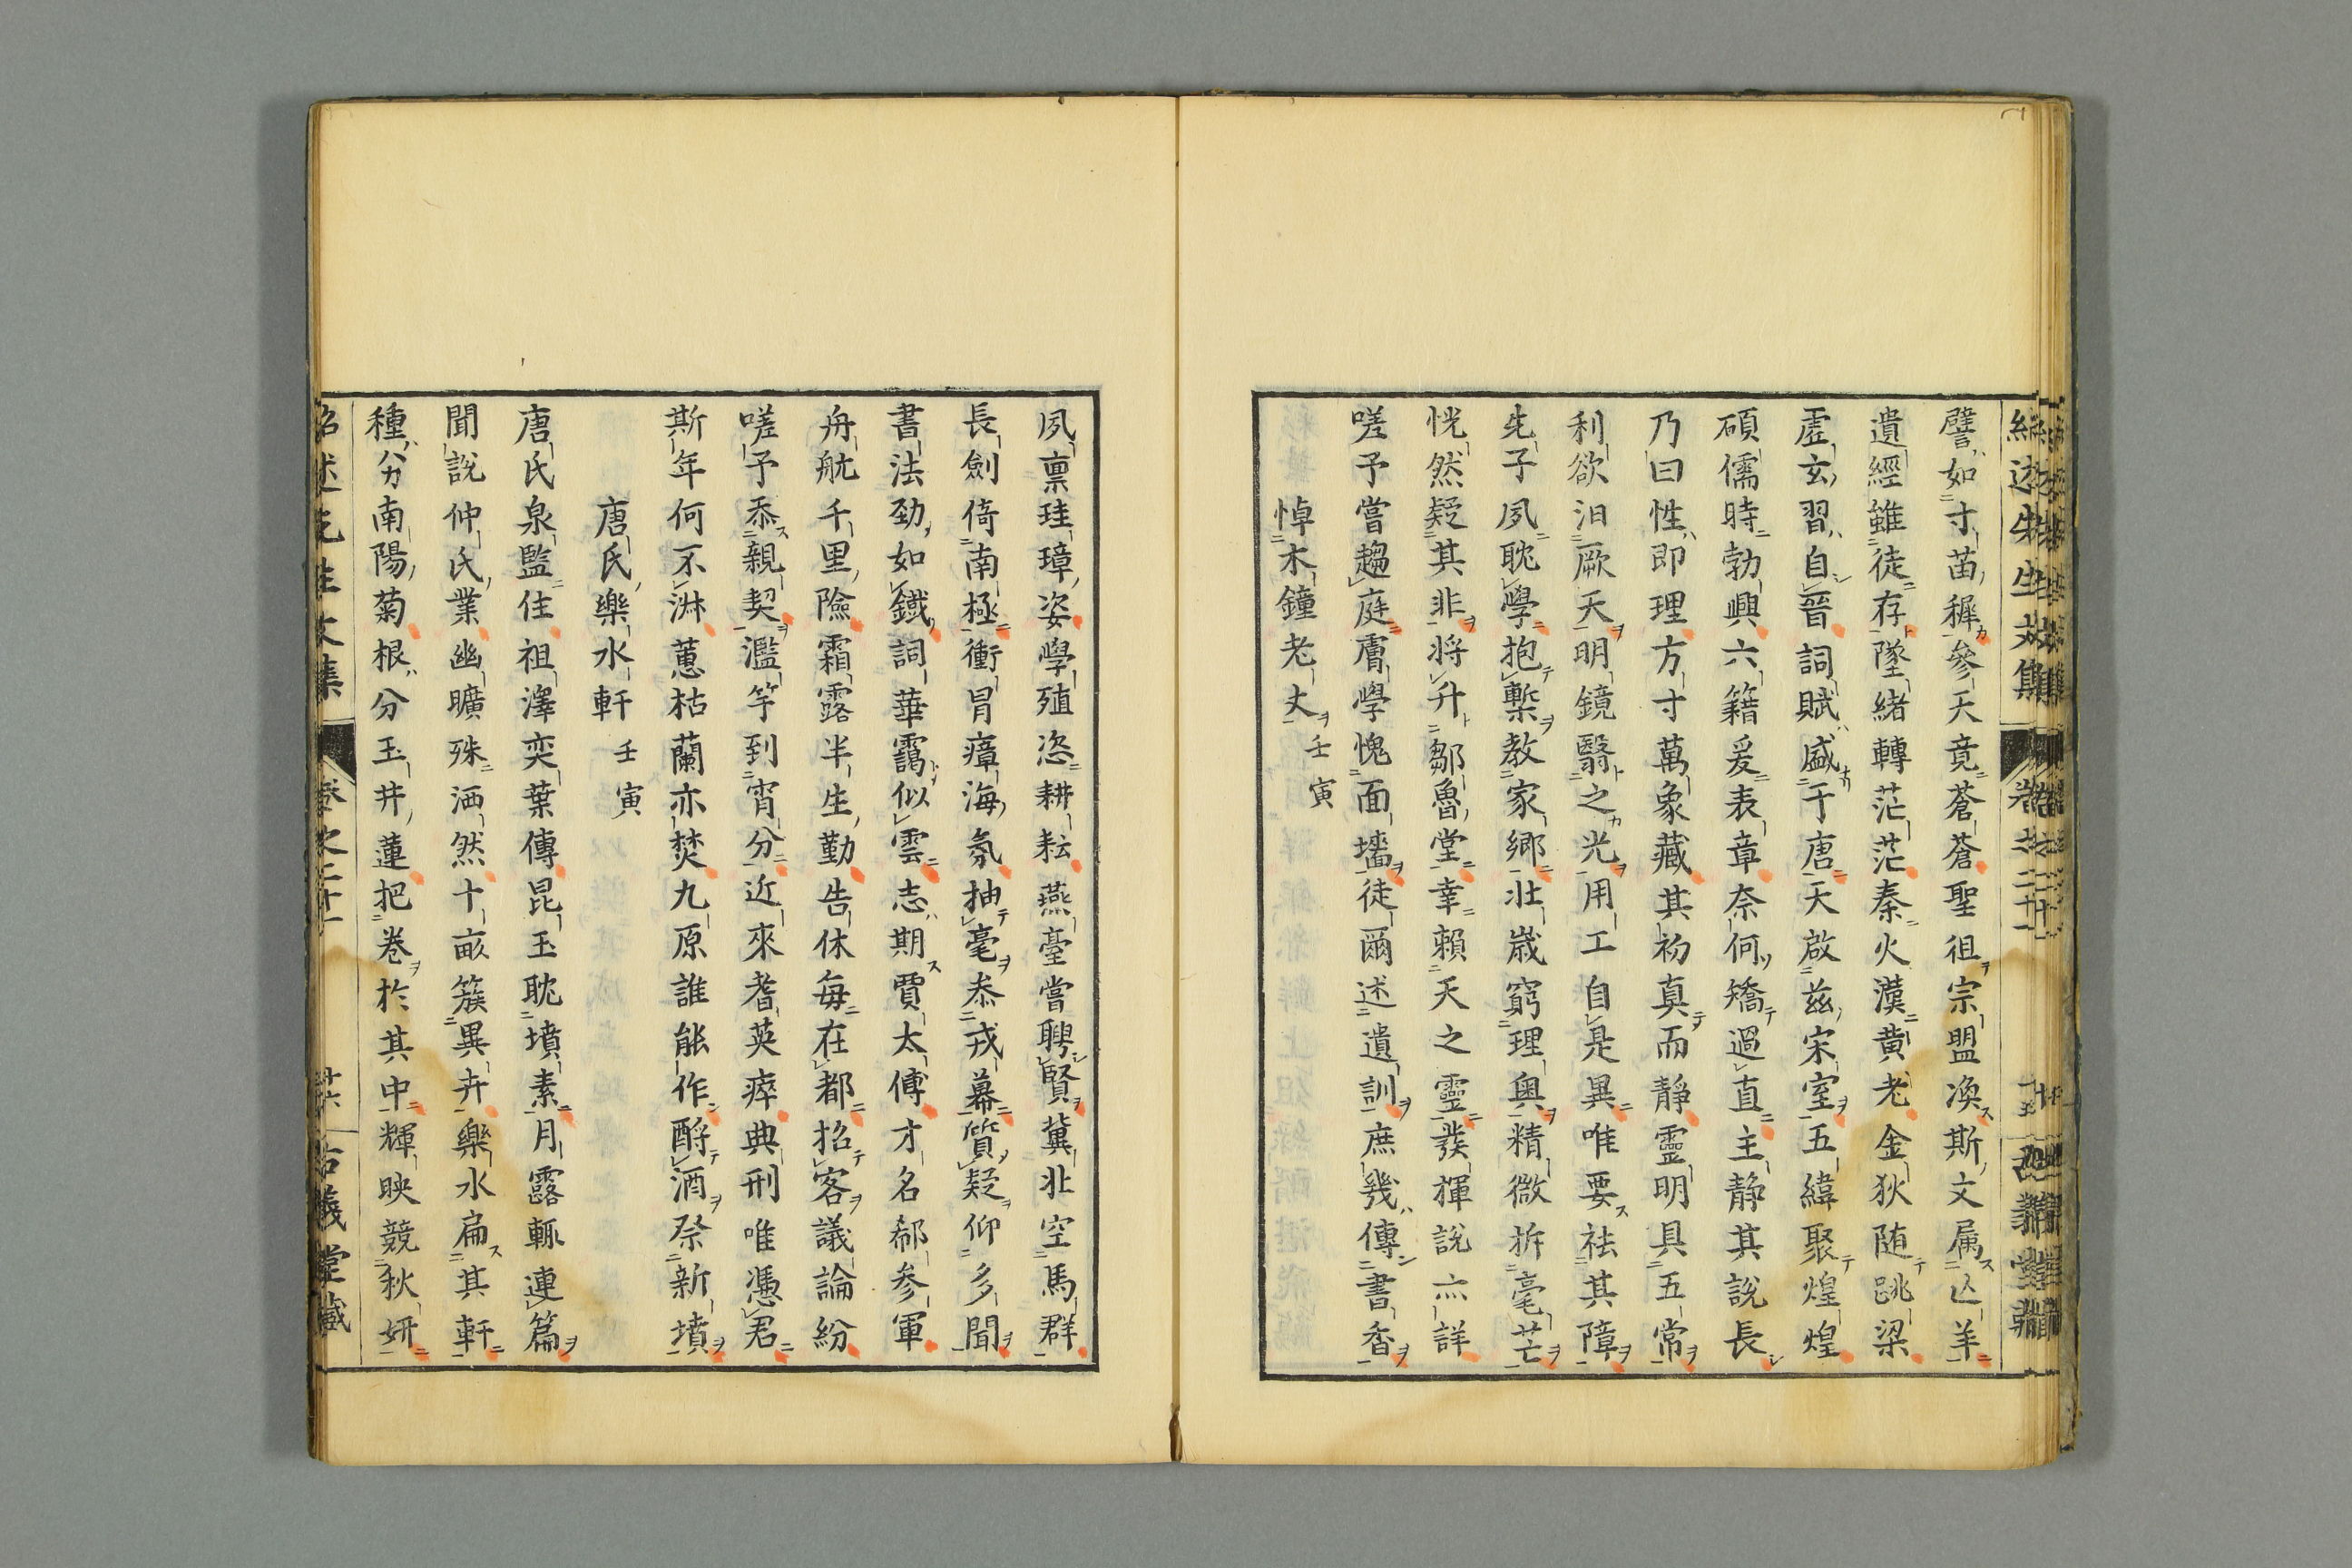 紹述先生文集 卷之二十一 古義堂藏
譬如寸苗穉參天竟蒼蒼聖徂宗盟渙斯文属亾羊
遺經雖徒存墜緒轉茫茫秦火漢黄老金狄随跳梁
虚玄習自晉詞賦盛于唐天啟兹宋室五緯聚煌煌
碩儒時勃興六籍爰表章奈何矯過直主静其說長
乃曰性即理方寸萬象藏其初真而静靈明具五常
利欲汨厥天明鏡翳之光用工自是異唯要祛其障
先子夙耽學抱槧教家鄉壮歳窮理奥精微析毫芒
恍然疑其非将升鄒魯堂幸賴天之靈發揮說亦詳
嗟予嘗趨庭膚學愧面墻徒爾述遺訓庶幾傳書香
悼木鐘老丈 壬寅
夙禀珪璋姿學殖恣耕耘燕臺嘗聘賢冀北空馬群
長劍倚南極衝冒瘴海氛抽毫忝戎幕質疑仰多聞
書法勁如鐵詞華靄似雲志期賈太傅才名郗参軍
舟航千里險霜露半生勤告休每在都招客議論紛
嗟予忝親契濫竽到宵分近來耆英瘁典刑唯憑君
斯年何不淑蕙枯蘭亦焚九原誰能作酹酒祭新墳
唐氏樂水軒 壬寅
唐氏泉監住祖澤奕葉傳昆玉耽墳素月露輒連篇
聞說仲氏業幽曠殊洒然十畝簇異卉樂水扁其軒
種分南陽菊根分玉井蓮把卷於其中輝映競秋妍
紹述先生文集 卷之二十一 廿六 古義堂藏